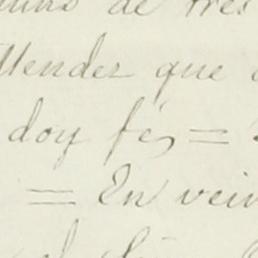 de tres
ttender que
doy fé, =
= En vein